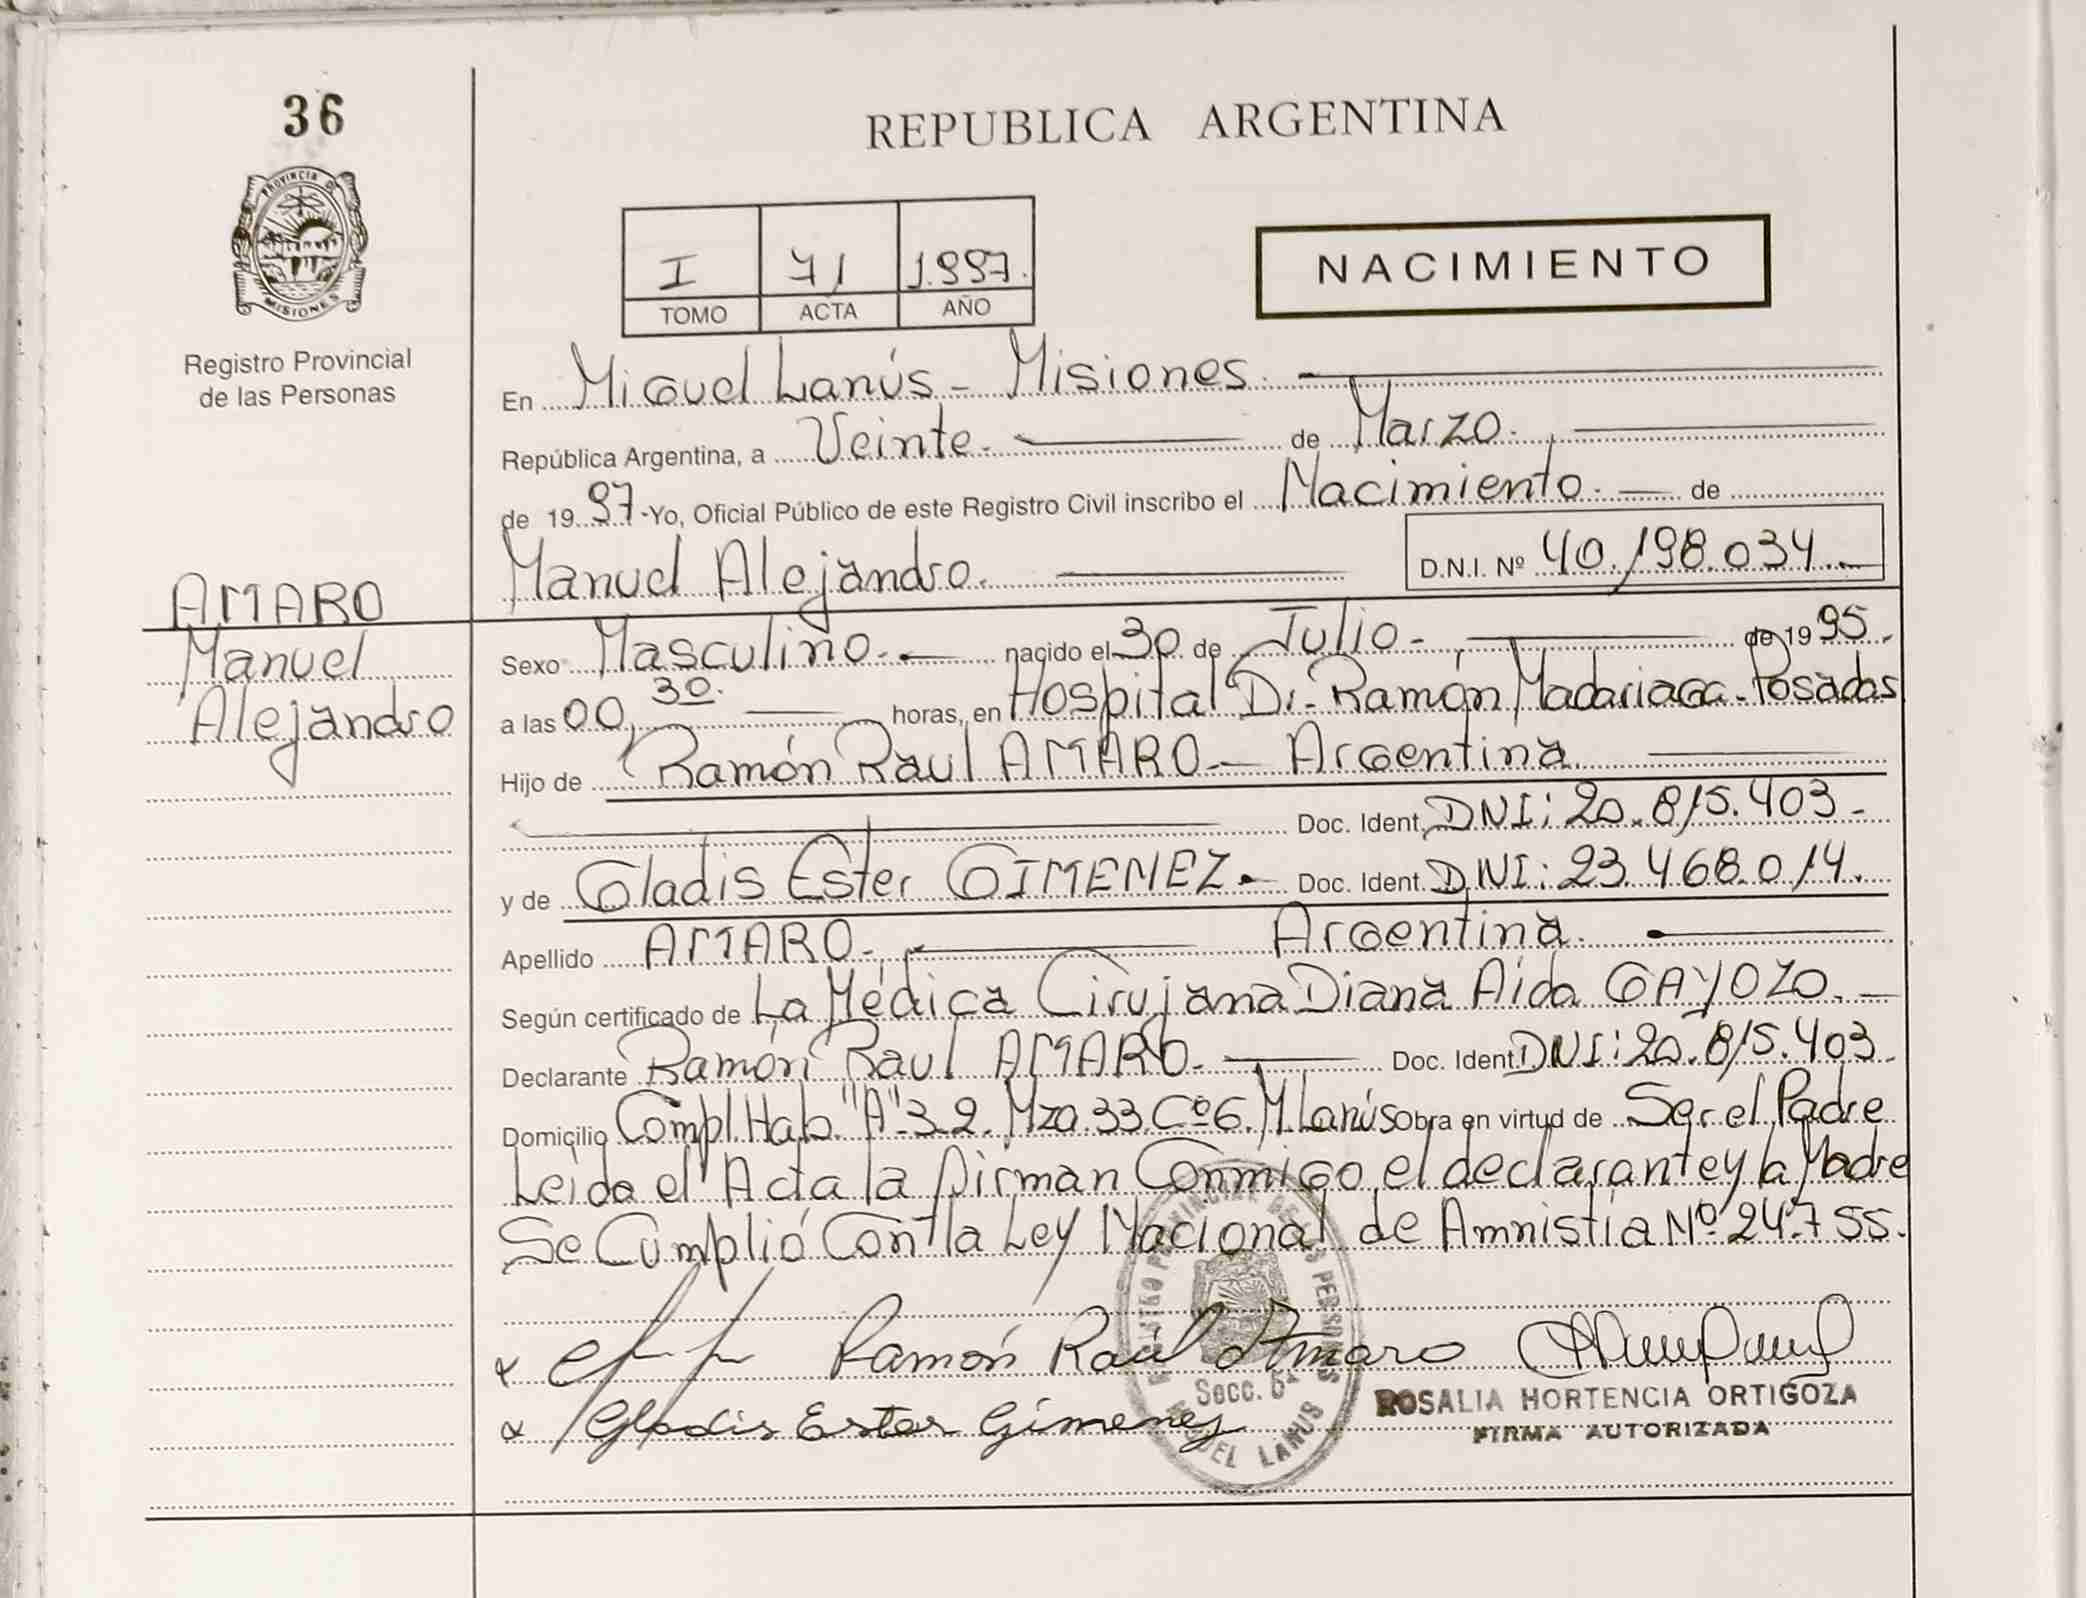 36
PROVINCIA DE
MISIONES
Registro Provincial
de las Personas
AMARO
Manuel
Alejandro
REPUBLICA ARGENTINA
I 71 1.997.
TOMO ACTA AÑO
NACIMIENTO
En Miguel Lanús - Misiones.
República Argentina, a Veinte. de Marzo.
de 1997 - Yo, Oficial Público de este Registro Civil inscribo el Nacimiento. de
Manuel Alejandro. D.N.I. Nº 40.198.034.
Sexo Masculino. nacido el 30 de Julio - de 1995.
a las 00,30. horas, en Hospital Dr. Ramón Madariaga - Posadas
Hijo de Ramón Raul AMARO - Argentina
Doc. Ident. DNI: 20.815.403 -
y de Gladis Ester GIMENEZ. Doc. Ident. DNI: 23.468.014.
Apellido AMARO. Argentina.
Según certificado de La Médica Cirujana Diana Aida GAYOZO.
Declarante Ramón Raul AMARO. Doc. Ident. DNI: 20.815.403
Domicilio Compl. Hab. "A" 32. Mza. 33. Cº 6. M. Lanús Obra en virtud de Ser el Padre
Leida el Acta la firman Conmigo el declarante y la Madre
Se Cumplió Con la Ley Nacional de Amnistía Nº 24.755.
Ramón Raúl Amaro
Gladis Ester Gimenez
REGISTRO PROVINCIAL DE LAS PERSONAS
Secc. 5ª
MIGUEL LANUS
ROSALIA HORTENCIA ORTIGOZA
FIRMA AUTORIZADA